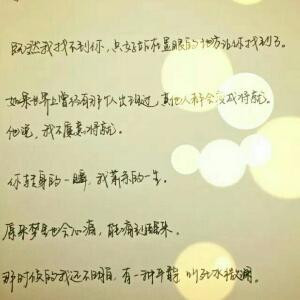 既然我找不到你，只好站在显眼的地方让你找到了。
如果世界上曾经有那个人出现过，其他人都会变成将就。
他说，我不愿意将就。
你转身的一瞬，我萧条的一生。
原来梦里也会心痛，能痛到醒来。
那时候的我还不明白，有一种平静 叫死水微澜。